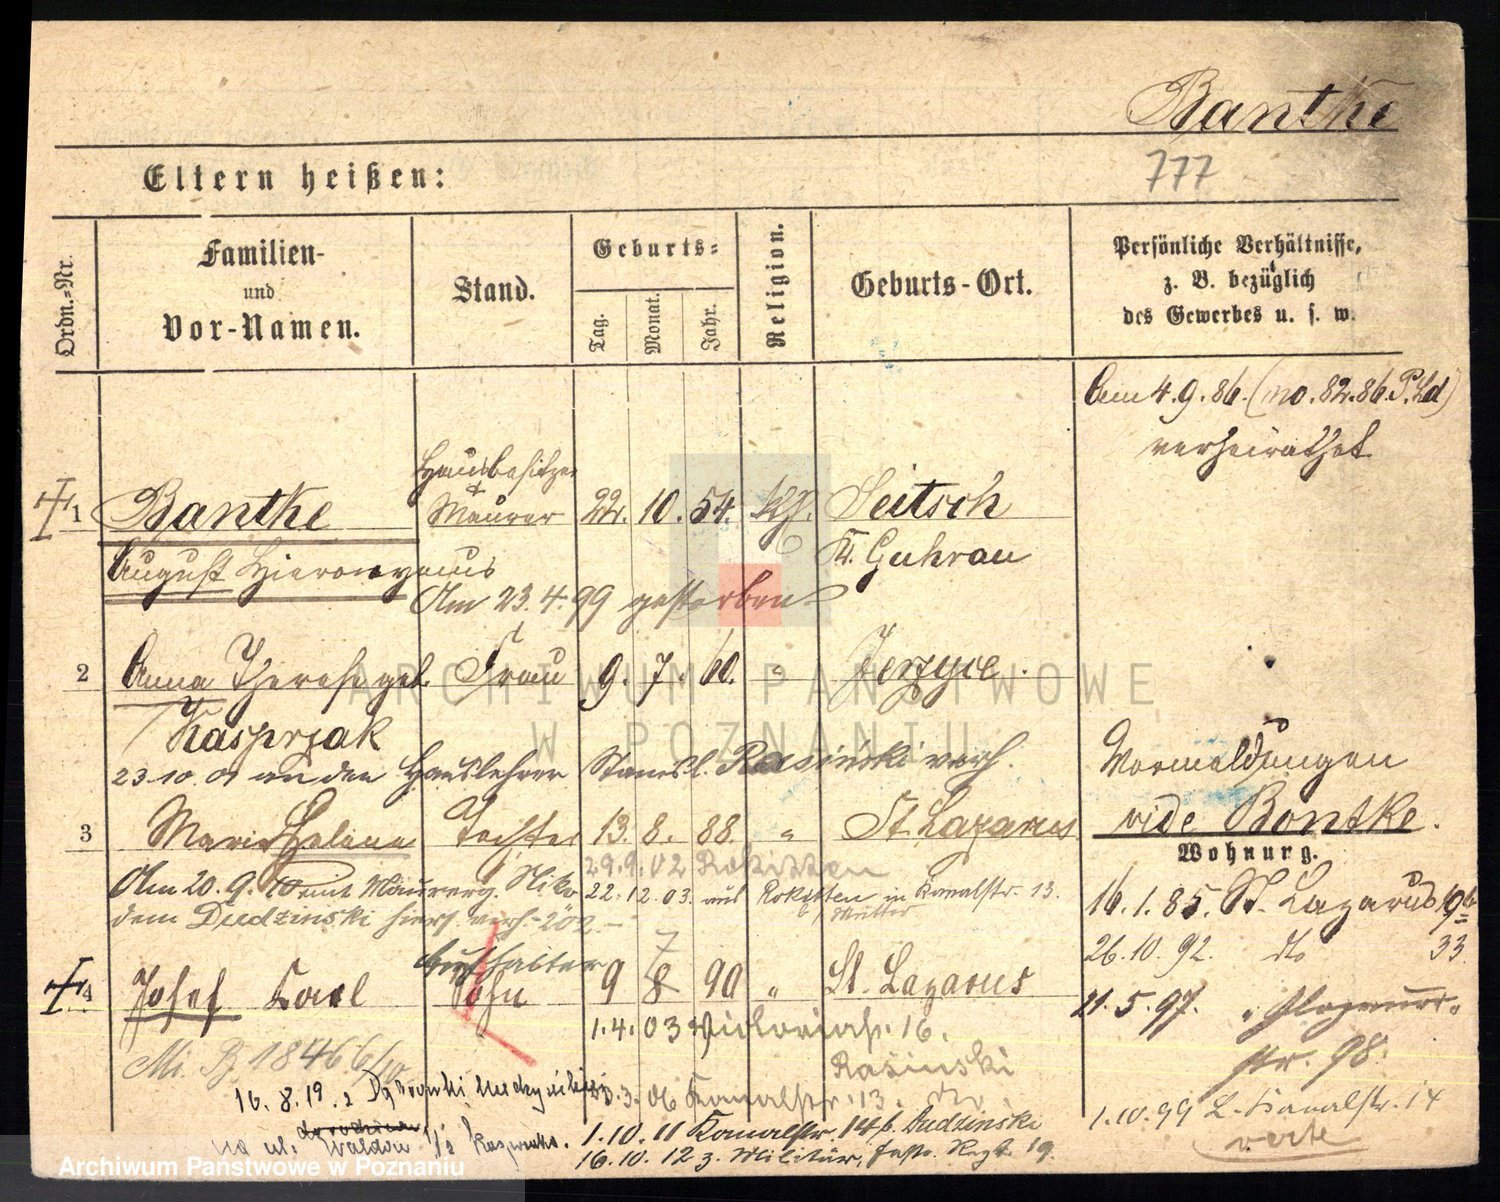 Bantke
777
Eltern heißen:
Ordn.-Nr.
Familien-
und
Vor-Namen.
Stand.
Geburts-
Tag.
Monat.
Jahr.
Religion.
Geburts-Ort.
Persönliche Verhältnisse,
z. B. bezüglich
des Gewerbes u. s. w.
Am 4.9.86. (No. 82.86. P. Ld)
verheirathet
Hausbesitzer
1 Bantke Maurer 22. 10. 54. kth. Seitsch
August Hieronymus Kr. Guhrau
Am 23.4.99 gestorben
2 Anna Therese geb. Frau 9. 7. 60. " Jerzyce.
Kasprzak
23.10.01 an den Hauslehrer Stanisl. Rasiński verh.
Vormeldungen
vide Bontke.
3 Marie Helene Tochter 13. 8. 88. " St Lazarus
Wohnung.
29.9.02 Rokitten
Am 20.9. mit Maurerg. Niko-
dem Dudzinski hiers. verh. 202.
22.12.03. aus Rokitten in Kanalstr. 13.
b/ Mutter
16.1.85. St. Lazarus 19b
26.10.92. do 33
7
4 Josef Karl Sohn 9 8 90 " St. Lazarus
21.5.97. "
str. 98.
1.4.03 Victoriastr. 16.
Rasinski
Mi. B. 1846 6/10
3.06 Kanalstr. 13.
1.10.99 Kanalstr. 14
verte
16.8.19. z Dąbrowki
na ul.
1.10.11 Kanalstr. 14 b. Dudzinski
16.10.12 z. Militär, Regt. 19.
ARCHIWUM PAŃSTWOWE
W POZNANIU
Archiwum Państwowe w Poznaniu